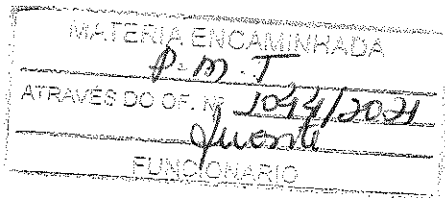 MATERIA ENCAMINHADA
P.M.T
ATRAVÉS DO OF. Nº 1044/2021
FUNCIONARIO